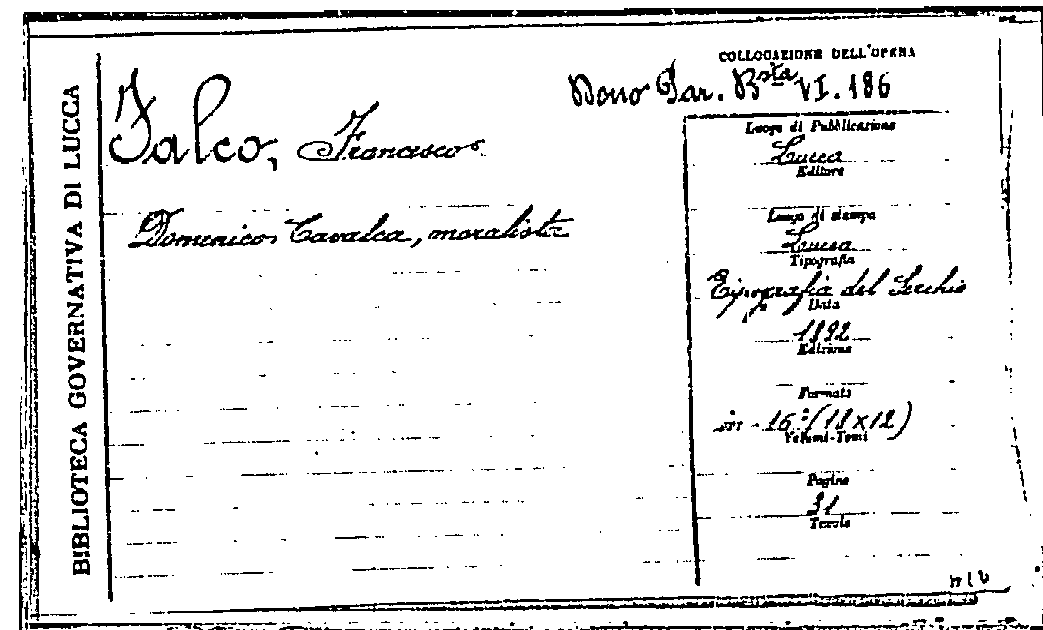 BIBLIOTECA GOVERNATIVA DI LUCCA
COLLOCAZIONE DELL'OPERA
Dono Gar. Bsta VI. 186
Falco, Francesco
Domenico Cavalca, moralista
Luogo di Pubblicazione
Lucca
Editore
Luogo di stampa
Lucca
Tipografia
Tipografia del Serchio
Data
1892
Edizione
Formato
in - 16° (18 x 12)
Volumi-Tomi
Pagine
31
Tavole